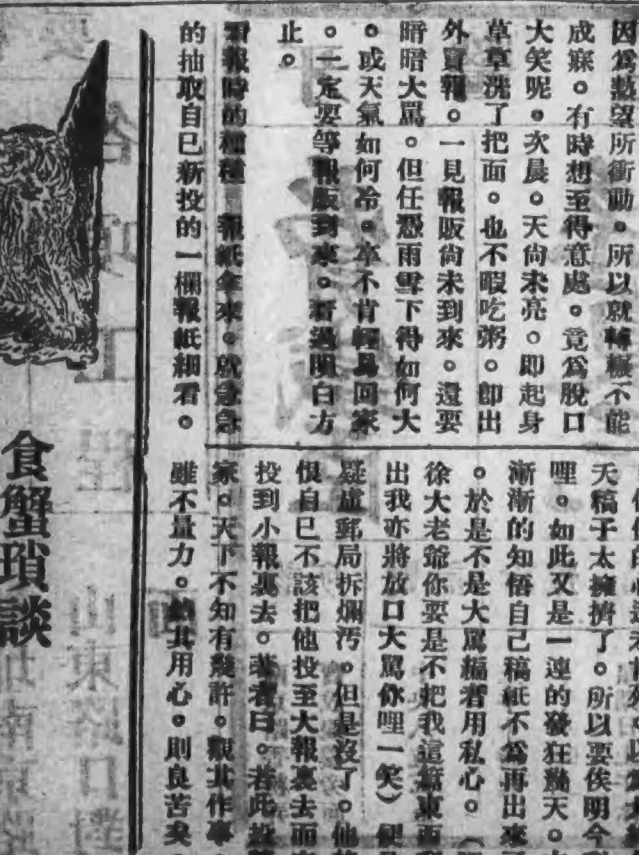 因爲熱望所衝動。所以就輾轉不能
成寐。有時想至得意處。竟爲脫口
大笑呢。次晨。天尙未亮。即起身
草草洗了把面。也不暇吃粥。卽出
外買報。一見報販尙未到來。還要
暗暗大罵。但任憑雨雪下得如何大
。或天氣如何冷。卒不肯輕易回家
。一定要等報販到來。看過明白方
止。
看報時的種種 報紙拿來。就急急
的抽取自己新投的一欄報紙細看。
天稿子太擁擠了。所以要俟明今
哩。如此又是一連的發狂幾天。
漸漸的知悟自己稿紙不爲再出來
。於是不是大罵編者用私心。
徐大老爺你要是不把我這篇東西
出我亦將放口大罵你哩一笑）便
疑虛郵局拆爛汚。但是沒了。他
恨自己不該把他投至大報裏去而
投到小報裏去。著者曰。若此投
家。天下不知有幾許。觀其作事。
雖不量力。其用心。則良苦矣。
食蟹瑣談